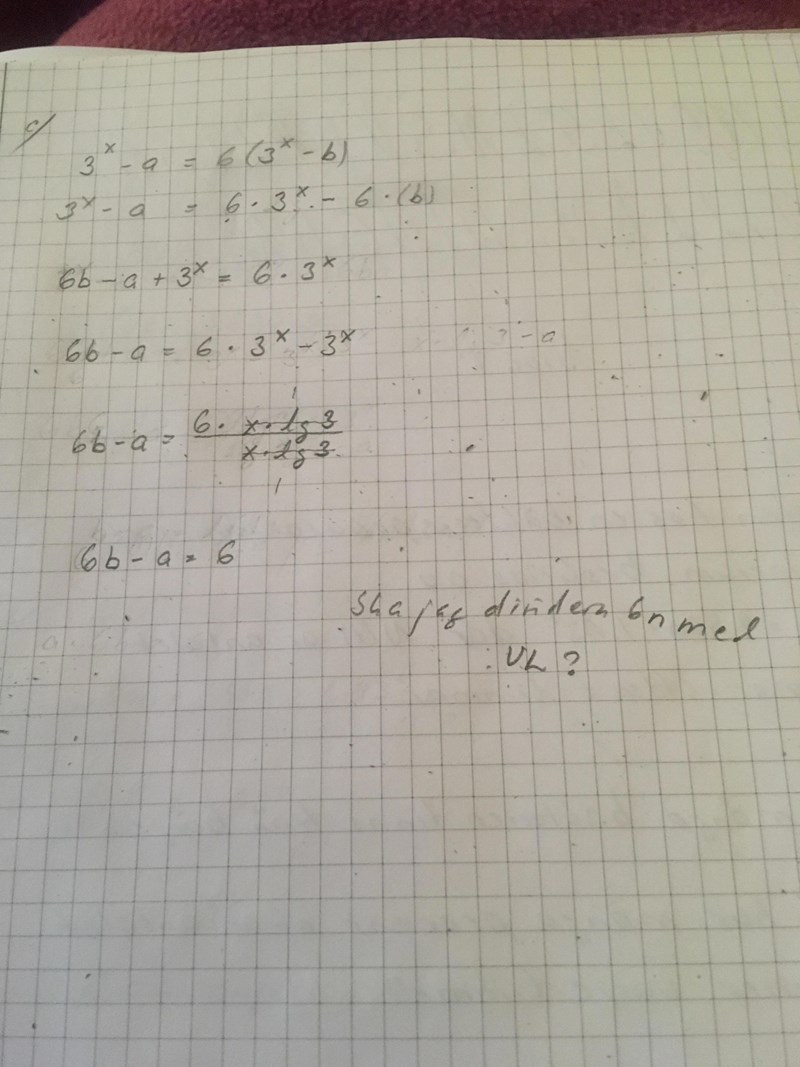 c/
3^x - a = 6(3^x - b)
3^x - a = 6 · 3^x - 6 · (b)
6b - a + 3^x = 6 · 3^x
6b - a = 6 · 3^x - 3^x
- a
1
6b - a = 6 · x · lg 3 / x · lg 3
1
6b - a = 6
Ska jag dividera 6n med
VL?